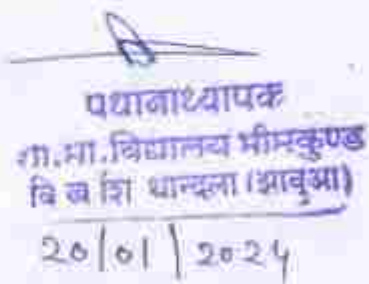 पधानाध्यापक
शा.मा.विद्यालय भीमकुण्ड
वि ख शि थान्दला (झाबुआ)
20/01/2024